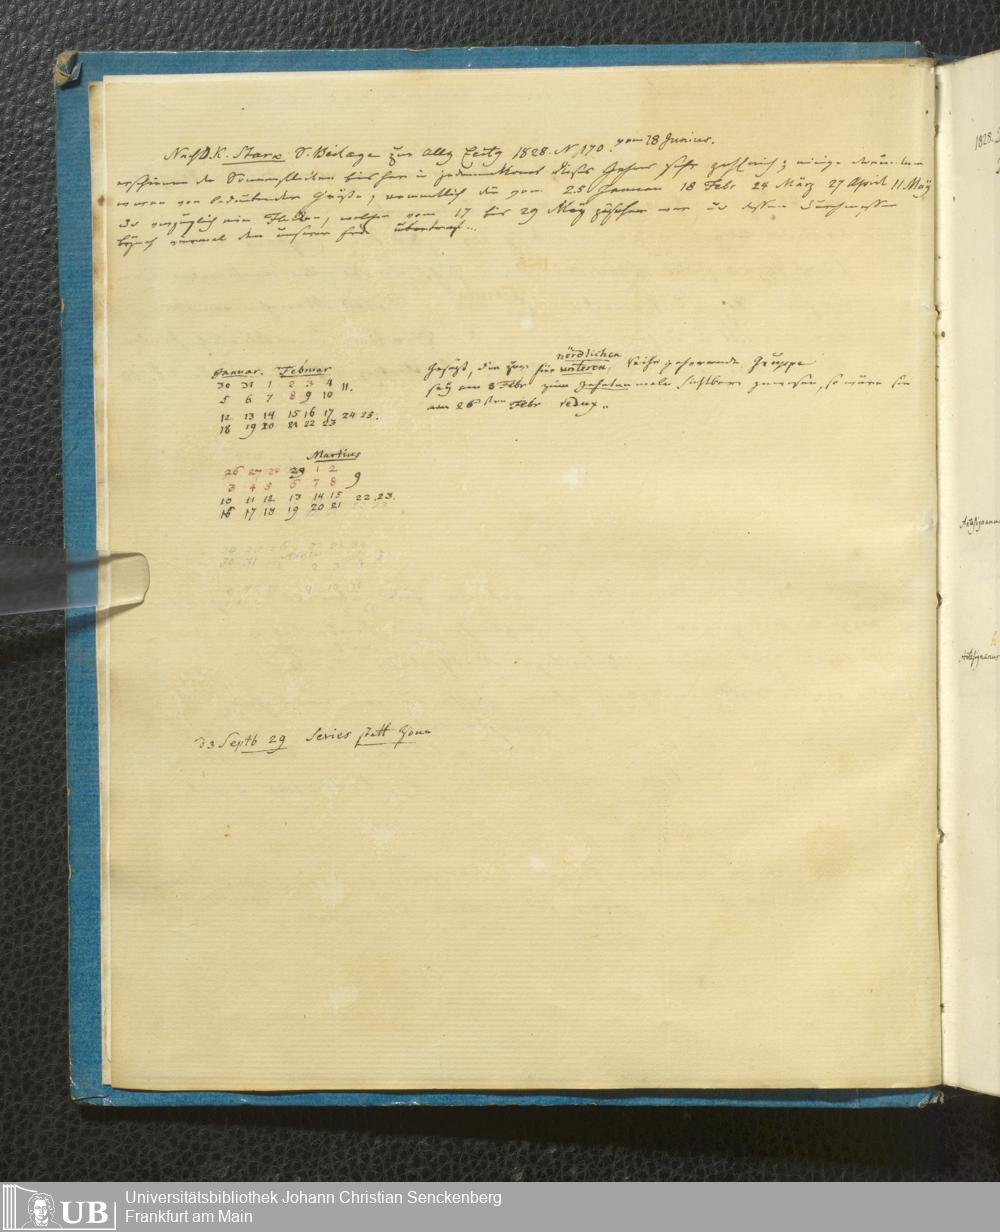 Nach D. K. Stark S. Beilage zur Allg Zeitg 1828. N. 170. vom 18 Junius.
erschienen die Sonnenflecken bisher in jedem Monat dieses Jahres sehr zahlreich; einige derselben
waren von bedeutender Größe, namentlich die vom 25 Januar 18 Febr 24 März 27 April 11 May
vorzüglich ein Flecken, welcher vom 17 bis 29 May zu sehen war u. dessen Durchmesser
den unserer Erde übertraf...
Januar. Februar
30 31 1 2 3 4 11.
5 6 7 8 9 10
12 13 14 15 16 17 24 25.
18 19 20 21 22 23
Gesetzt, die zur nördlichen
für unteren Reihe gehörende Gruppe
sey am 8 Febr zum sichtbar gewesen, so wäre sie
am 26sten Febr redux..
Martius
26 27 28 29 1 2
3 4 5 6 7 8 9
10 11 12 13 14 15 22.23.
16 17 18 19 20 21
d 3 Septb 29 Series statt Zone
1828.
Antesignanus
Antesignanus
UB
Universitätsbibliothek Johann Christian Senckenberg
Frankfurt am Main